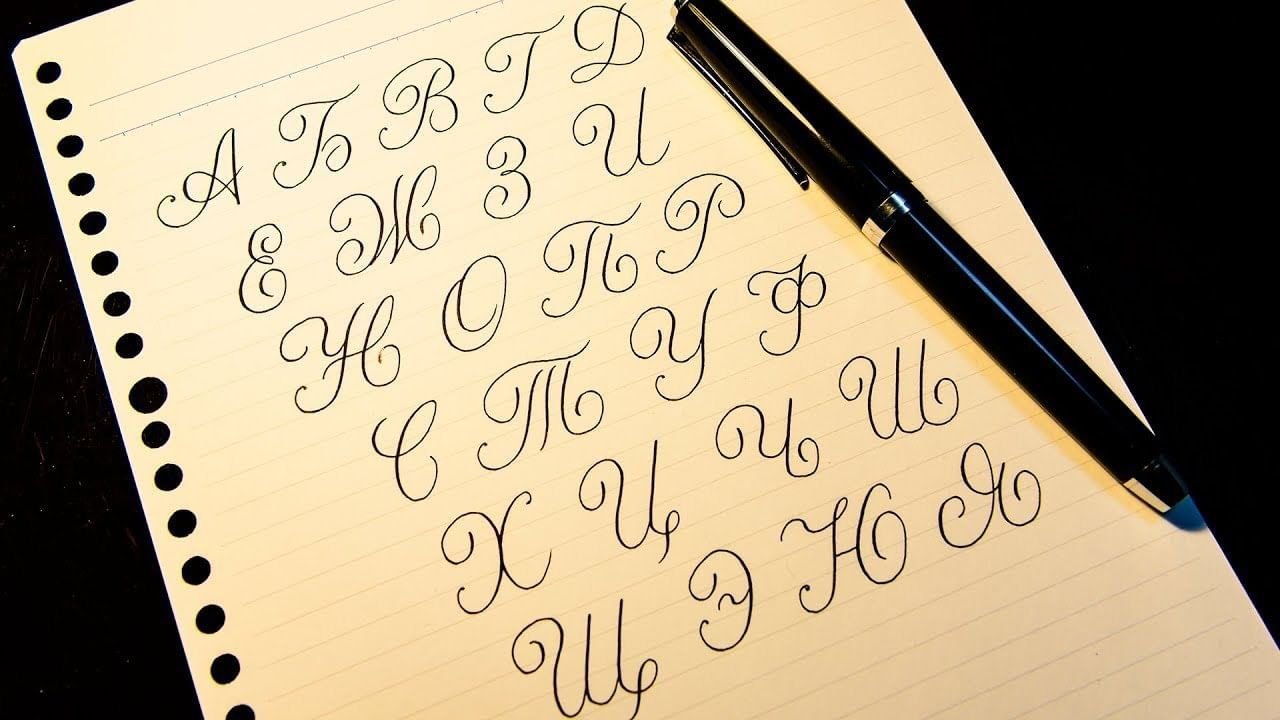 А Б В Г Д
Е Ж З И
Н О П Р
С Т У Ф
Х Ц Ч Ш
Щ Э Ю Я